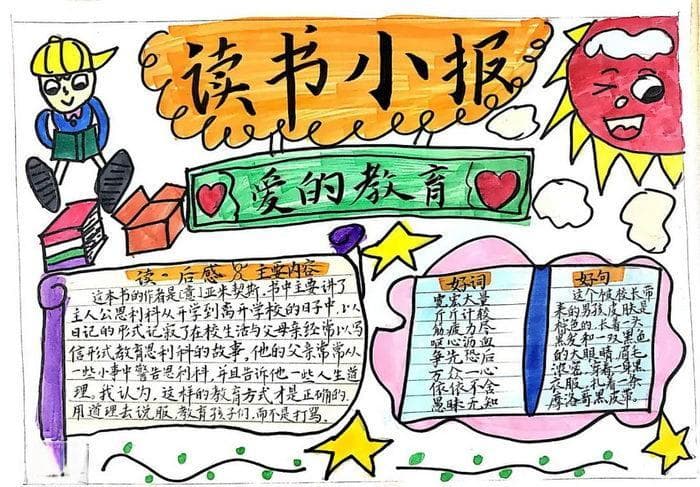 读书小报
爱的教育
读一后感&主要内容
这本书的作者是[意]亚米契斯.书中主要讲了
主人公恩利科从开学到离开学校的日子中,以
日记的形式记叙了在校生活与父母亲经常以写
信形式教育恩利科的故事,他的父亲常常从
一些小事中警告恩利科,并且告诉他一些人生道
理。我认为,这样的教育方式才是正确的.
用道理去说服教育孩子们,而不是打骂。
好词
宽宏大量
斤斤计较
筋疲力尽
呕心沥血
争先恐后
万众一心
依依不舍
愚昧无知
好句
这个被校长带
来的男孩皮肤是
棕色的.长着一头
黑发和一双黑色
的大眼睛.眉毛
浓密.穿着一身黑
衣服.扎着一条
摩洛哥黑皮带。